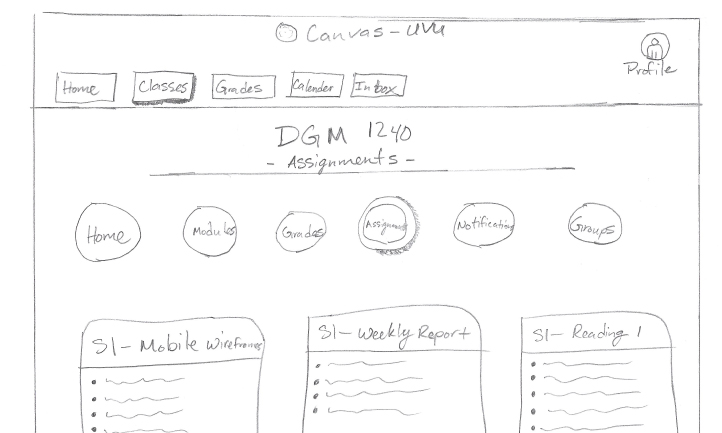 Canvas - UVU
Profile
Home Classes Grades Calender Inbox
DGM 1240
- Assignments -
Home Modules Grades Assignments Notifications Groups
S1 - Mobile Wireframes S1 - Weekly Report S1 - Reading 1